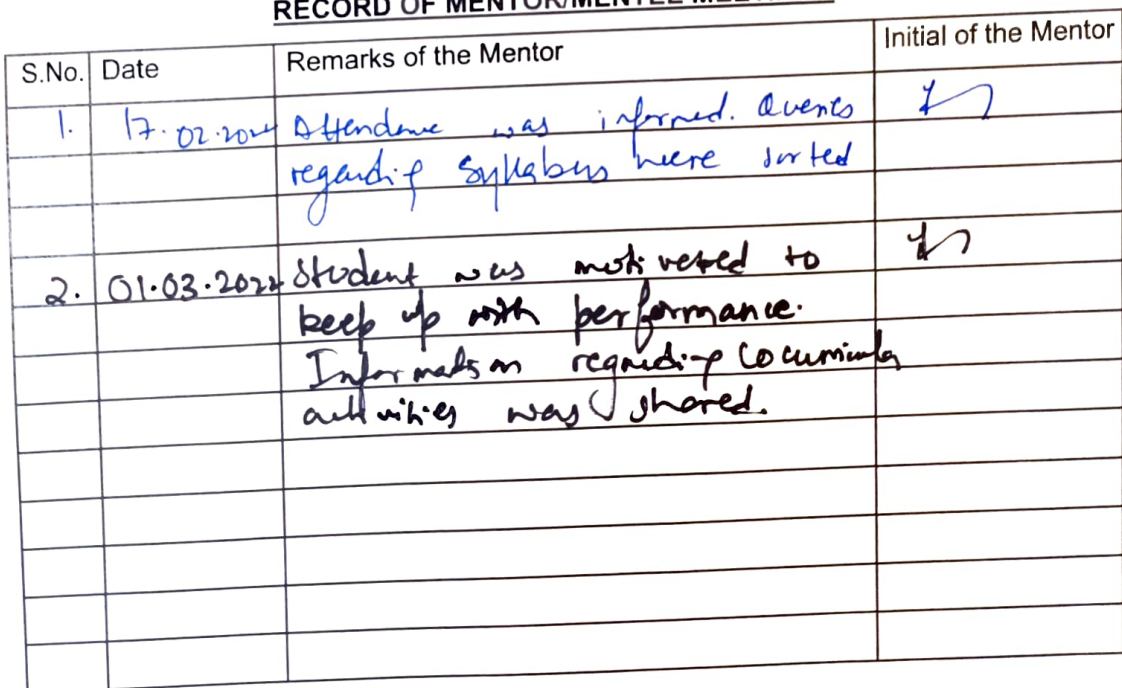 RECORD OF MENTOR/MENTEE
S.No. Date Remarks of the Mentor Initial of the Mentor
1. 17.02.2022 Attendance was informed. Queries
regarding syllabus were sorted
2. 01.03.2022 Student was motivated to
keep up with performance.
Information regarding cocurricular
activities was shared.